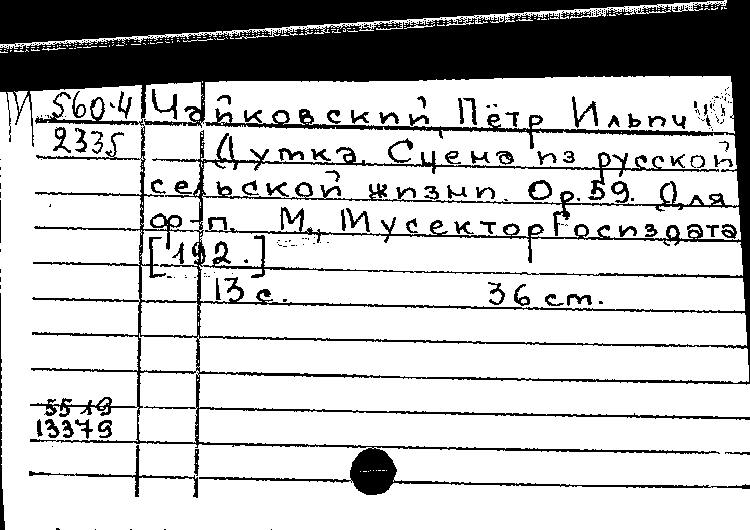 М 560.4 Чайковский, Пётр Ильич
2335 Думка. Сцена из русской
сельской жизни. Op. 59. Для
ф-п. М., Мусектор Госиздата
[192 . ]
13 с. 36 ст.
5519
13379